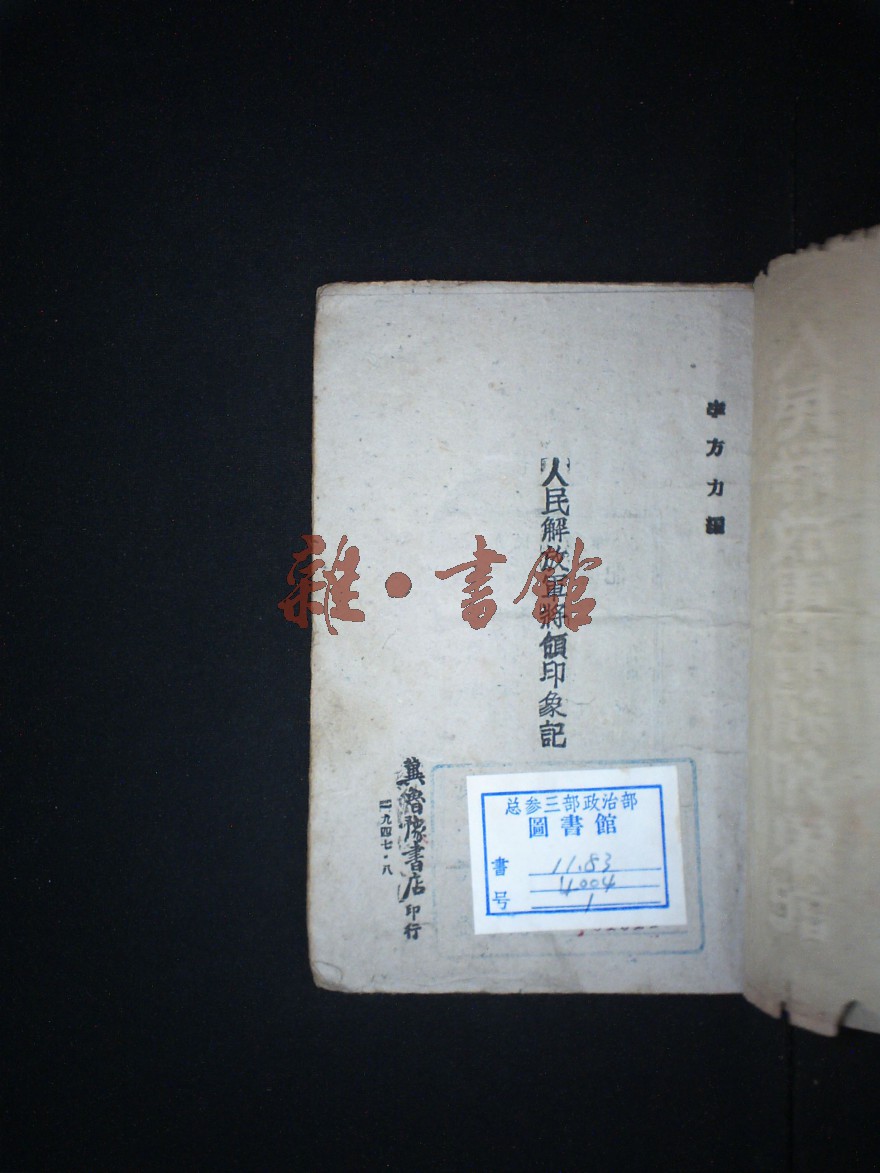 方力編
人民解放軍將領印象記
冀魯豫書店印行
一九四七·八
雜·書館
总参三部政治部
圖書館
書号
11.83
4004
1